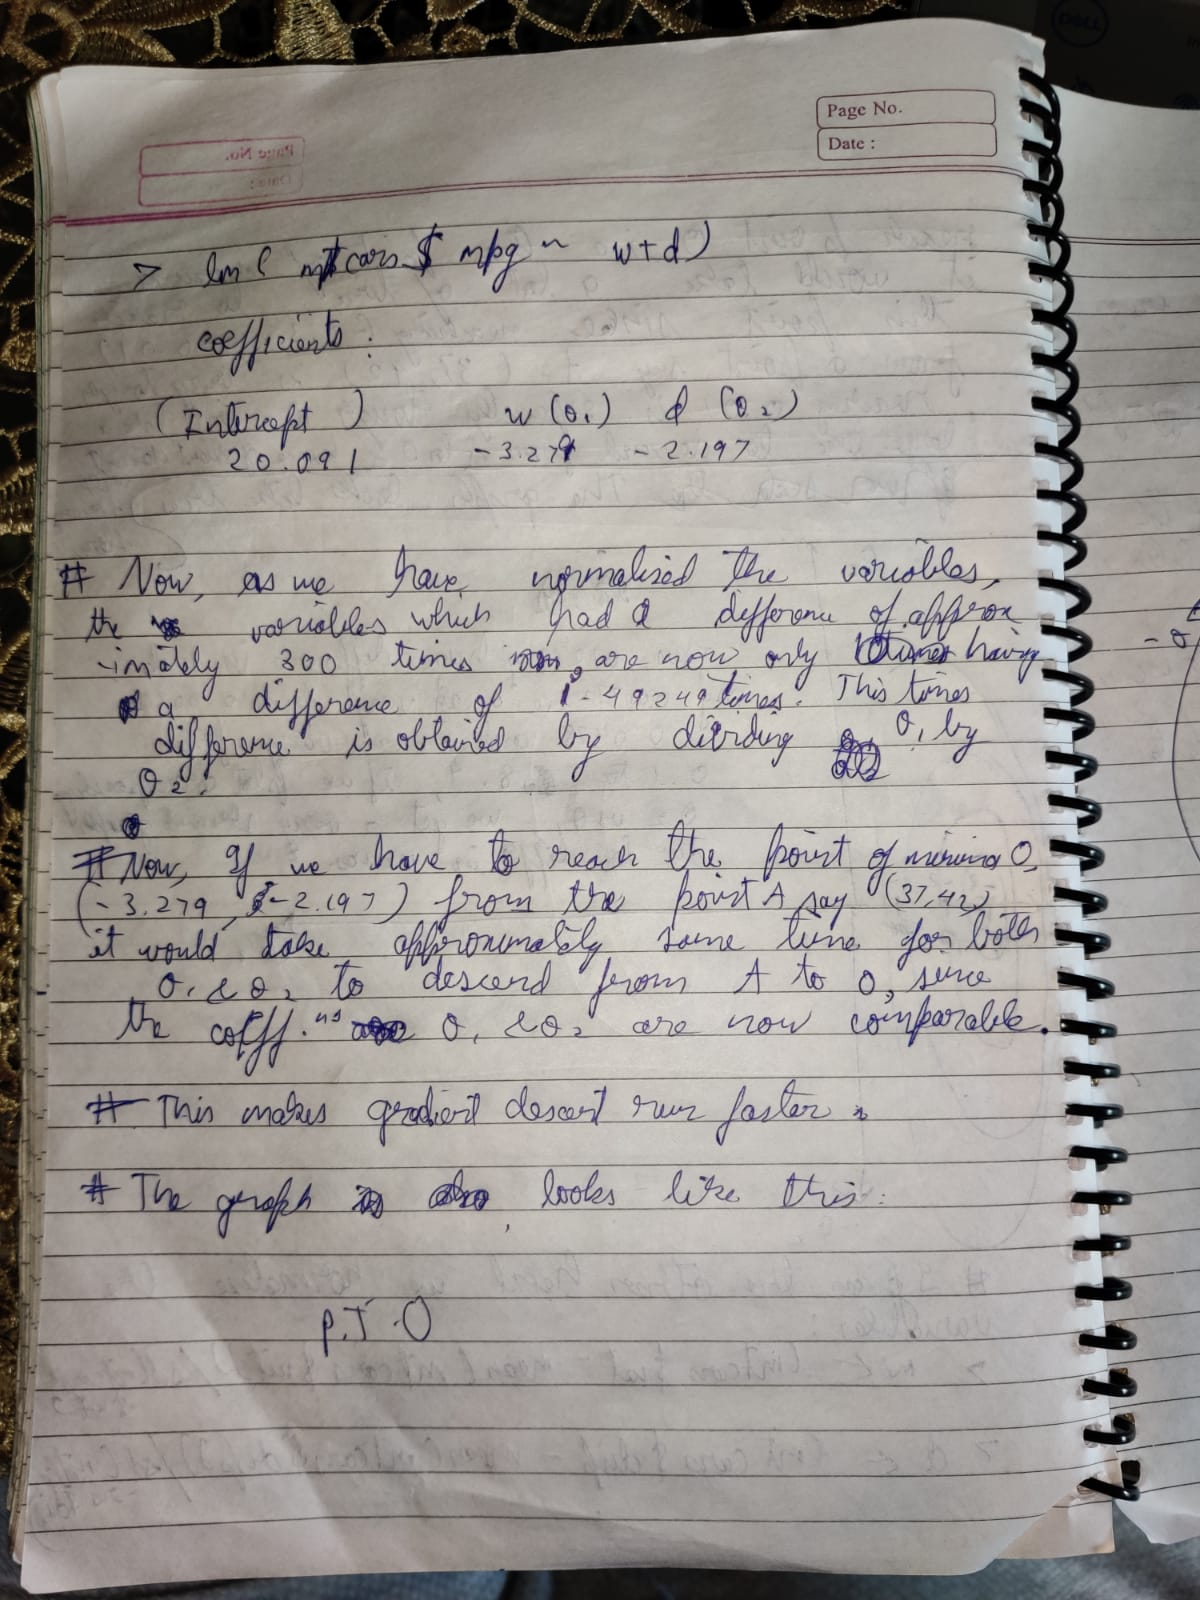 DELL
Page No.
Date :
> lm ( mtcars $ mpg ~ w+d)
coefficients :
(Intercept) w (θ₁) d (θ₂)
20.091 -3.279 -2.197
# Now, as we have normalised the variables,
the variables which had a difference of approx
-imately 300 times, are now only having
a difference of 1.49249 times. This times
difference is obtained by dividing θ₁ by
θ₂.
# Now, If we have to reach the point of minima O,
(-3.279, -2.197) from the point A say (37,42)
it would take approximately same time for both
θ₁ & θ₂ to descend from A to O, since
the coeff.ⁿᵗˢ θ₁ & θ₂ are now comparable.
# This makes gradient descent run faster.
# The graph looks like this :
P.T.O